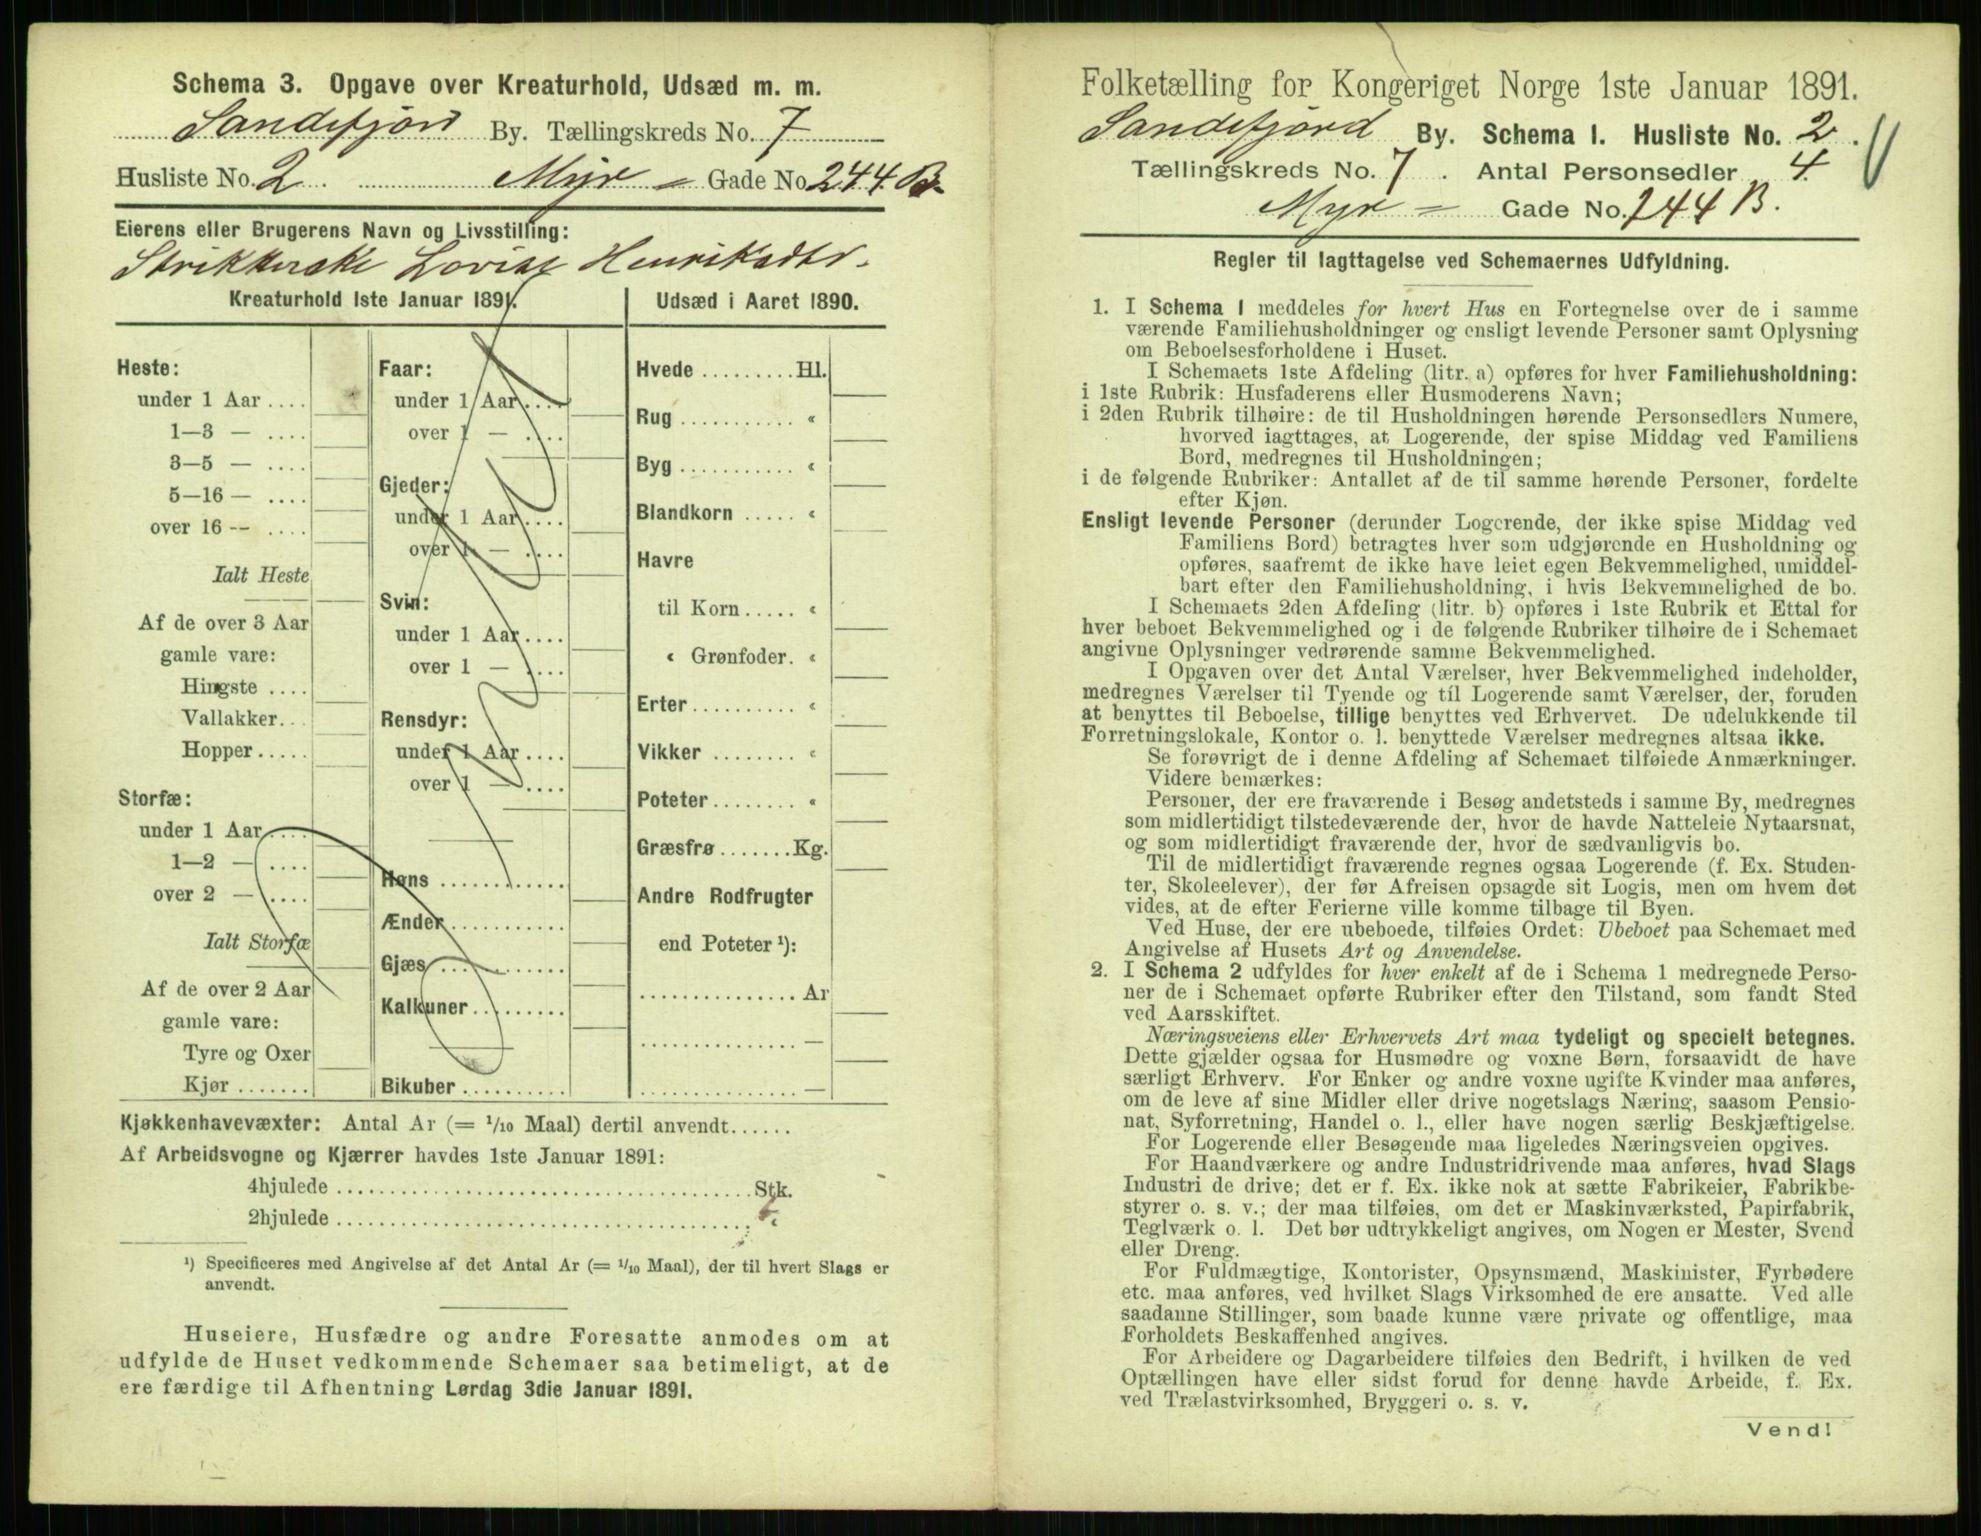 Schema 3. Opgave over Kreaturhold, Udsæd m. m.
Sandefjord By. Tællingskreds No. 7
Husliste No. 2. Myr = Gade No. 244 B.
Eierens eller Brugerens Navn og Livsstilling:
Lovise
Kreaturhold 1ste Januar 1891.
Heste:
under 1 Aar ....
1—3 — ....
3—5 — ....
5—16 — ....
over 16 — ....
Ialt Heste
Af de over 3 Aar
gamle vare:
Hingste ....
Vallakker...
Hopper.....
Storfæ:
under 1 Aar....
1—2 — ....
over 2 — ....
Ialt Storfæ
Af de over 2 Aar
gamle vare:
Tyre og Oxer
Kjør .......
Faar:
under 1 Aar....
over 1 — ....
Gjeder:
under 1 Aar....
over 1 — ....
Svin:
under 1 Aar....
over 1 — ....
Rensdyr:
under 1 Aar....
over 1 — ....
Høns ............
Ænder...........
Gjæs ............
Kalkuner.........
Bikuber ..........
Udsæd i Aaret 1890.
Hvede .........Hl.
Rug ........... «
Byg ........... «
Blandkorn ..... «
Havre
til Korn ..... «
« Grønfoder. «
Erter.......... «
Vikker ........ «
Poteter........ «
Græsfrø.......Kg.
Andre Rodfrugter
end Poteter ¹):
............... Ar
............... —
............... —
Kjøkkenhavevæxter: Antal Ar (= 1/10 Maal) dertil anvendt......
Af Arbeidsvogne og Kjærrer havdes 1ste Januar 1891:
4hjulede ........................................Stk.
2hjulede ........................................ «
¹) Specificeres med Angivelse af det Antal Ar (= 1/10 Maal), der til hvert Slags er
anvendt.
Huseiere, Husfædre og andre Foresatte anmodes om at
udfylde de Huset vedkommende Schemaer saa betimeligt, at de
ere færdige til Afhentning Lørdag 3die Januar 1891.
Folketælling for Kongeriget Norge 1ste Januar 1891.
Sandefjord By. Schema 1. Husliste No. 2.
Tællingskreds No. 7. Antal Personsedler 4.
Myr = Gade No. 244 B.
Regler til Iagttagelse ved Schemaernes Udfyldning.
1. I Schema 1 meddeles for hvert Hus en Fortegnelse over de i samme
værende Familiehusholdninger og ensligt levende Personer samt Oplysning
om Beboelsesforholdene i Huset.
I Schemaets 1ste Afdeling (litr. a) opføres for hver Familiehusholdning:
i 1ste Rubrik: Husfaderens eller Husmoderens Navn;
i 2den Rubrik tilhøire: de til Husholdningen hørende Personsedlers Numere,
hvorved iagttages, at Logerende, der spise Middag ved Familiens
Bord, medregnes til Husholdningen;
i de følgende Rubriker: Antallet af de til samme hørende Personer, fordelte
efter Kjøn.
Ensligt levende Personer (derunder Logerende, der ikke spise Middag ved
Familiens Bord) betragtes hver som udgjørende en Husholdning og
opføres, saafremt de ikke have leiet egen Bekvemmelighed, umiddel-
bart efter den Familiehusholdning, i hvis Bekvemmelighed de bo.
I Schemaets 2den Afdeling (litr. b) opføres i 1ste Rubrik et Ettal for
hver beboet Bekvemmelighed og i de følgende Rubriker tilhøire de i Schemaet
angivne Oplysninger vedrørende samme Bekvemmelighed.
I Opgaven over det Antal Værelser, hver Bekvemmelighed indeholder,
medregnes Værelser til Tyende og til Logerende samt Værelser, der, foruden
at benyttes til Beboelse, tillige benyttes ved Erhvervet. De udelukkende til
Forretningslokale, Kontor o. l. benyttede Værelser medregnes altsaa ikke.
Se forøvrigt de i denne Afdeling af Schemaet tilføiede Anmærkninger.
Videre bemærkes:
Personer, der ere fraværende i Besøg andetsteds i samme By, medregnes
som midlertidigt tilstedeværende der, hvor de havde Natteleie Nytaarsnat,
og som midlertidigt fraværende der, hvor de sædvanligvis bo.
Til de midlertidigt fraværende regnes ogsaa Logerende (f. Ex. Studen-
ter, Skoleelever), der før Afreisen opsagde sit Logis, men om hvem det
vides, at de efter Ferierne ville komme tilbage til Byen.
Ved Huse, der ere ubeboede, tilføies Ordet: Ubeboet paa Schemaet med
Angivelse af Husets Art og Anvendelse.
2. I Schema 2 udfyldes for hver enkelt af de i Schema 1 medregnede Perso-
ner de i Schemaet opførte Rubriker efter den Tilstand, som fandt Sted
ved Aarsskiftet.
Næringsveiens eller Erhvervets Art maa tydeligt og specielt betegnes.
Dette gjælder ogsaa for Husmødre og voxne Børn, forsaavidt de have
særligt Erhverv. For Enker og andre voxne ugifte Kvinder maa anføres,
om de leve af sine Midler eller drive nogetslags Næring, saasom Pensio-
nat, Syforretning, Handel o. l., eller have nogen særlig Beskjæftigelse.
For Logerende eller Besøgende maa ligeledes Næringsveien opgives.
For Haandværkere og andre Industridrivende maa anføres, hvad Slags
Industri de drive; det er f. Ex. ikke nok at sætte Fabrikeier, Fabrikbe-
styrer o. s. v.; der maa tilføies, om det er Maskinværksted, Papirfabrik,
Teglværk o. l. Det bør udtrykkeligt angives, om Nogen er Mester, Svend
eller Dreng.
For Fuldmægtige, Kontorister, Opsynsmænd, Maskinister, Fyrbødere
etc. maa anføres, ved hvilket Slags Virksomhed de ere ansatte. Ved alle
saadanne Stillinger, som baade kunne være private og offentlige, maa
Forholdets Beskaffenhed angives.
For Arbeidere og Dagarbeidere tilføies den Bedrift, i hvilken de ved
Optællingen have eller sidst forud for denne havde Arbeide, f. Ex.
ved Trælastvirksomhed, Bryggeri o. s. v.
Vend!